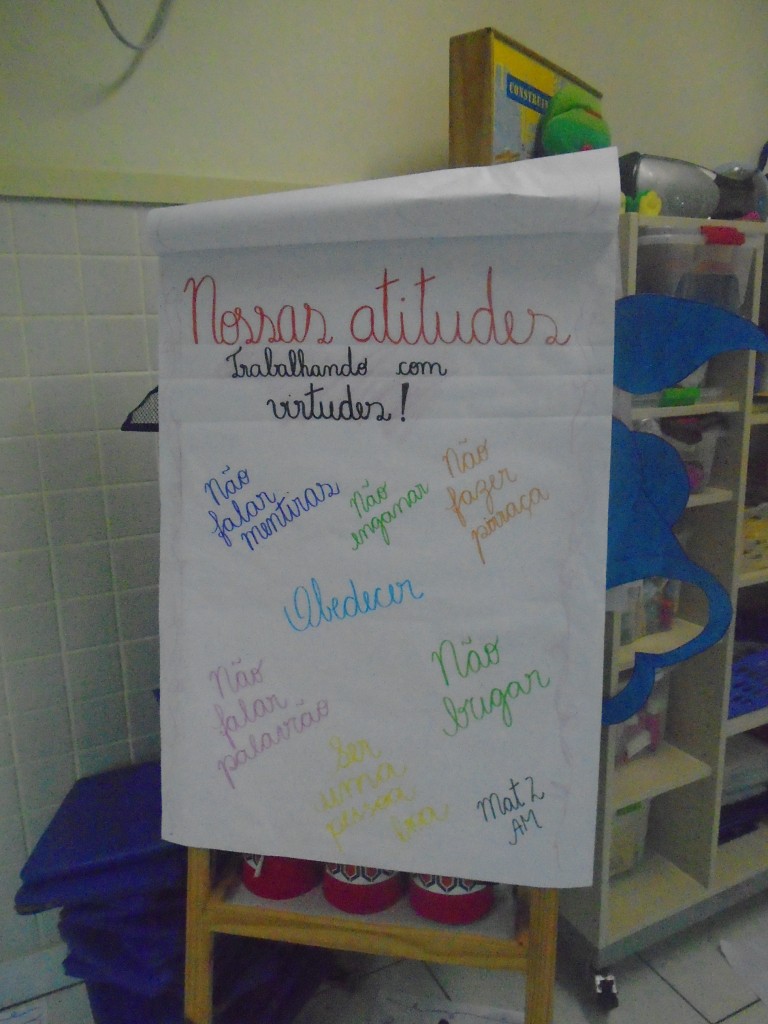 CONSTRUIN
Nossas atitudes
Trabalhando com
virtudes!
Não
falar
mentiras
Não
enganar
Não
fazer
pirraça
Obedecer
Não
falar
palavrão
Não
brigar
Ser
uma
pessoa
boa
Mat 2
AM